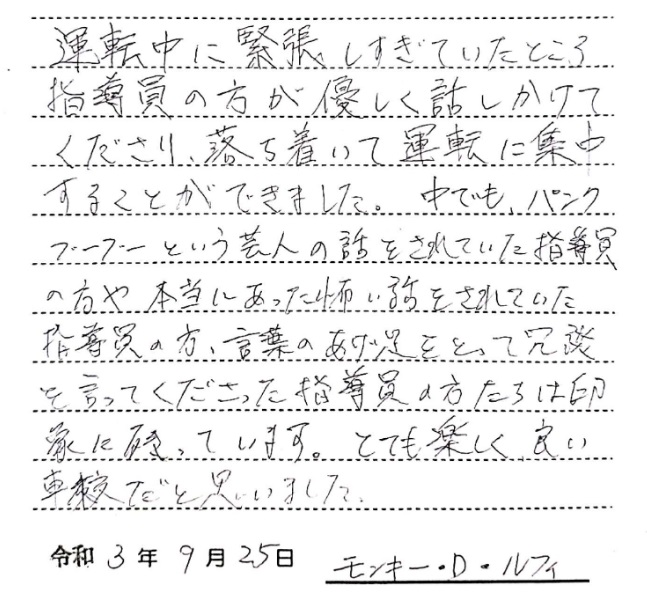 運転中に緊張しすぎていたところ
指導員の方が優しく話しかけて
くださり、落ち着いて運転に集中
することができました。中でも、パンク
ブーブーという芸人の話をされていた指導員
の方や本当にあった怖い話をされていた
指導員の方、言葉のあげ足をとって冗談
を言ってくださった指導員の方たちは印
象に残っています。とても楽しく、良い
車校だと思いました。
令和 3 年 9 月 25 日 モンキー・D・ルフィ